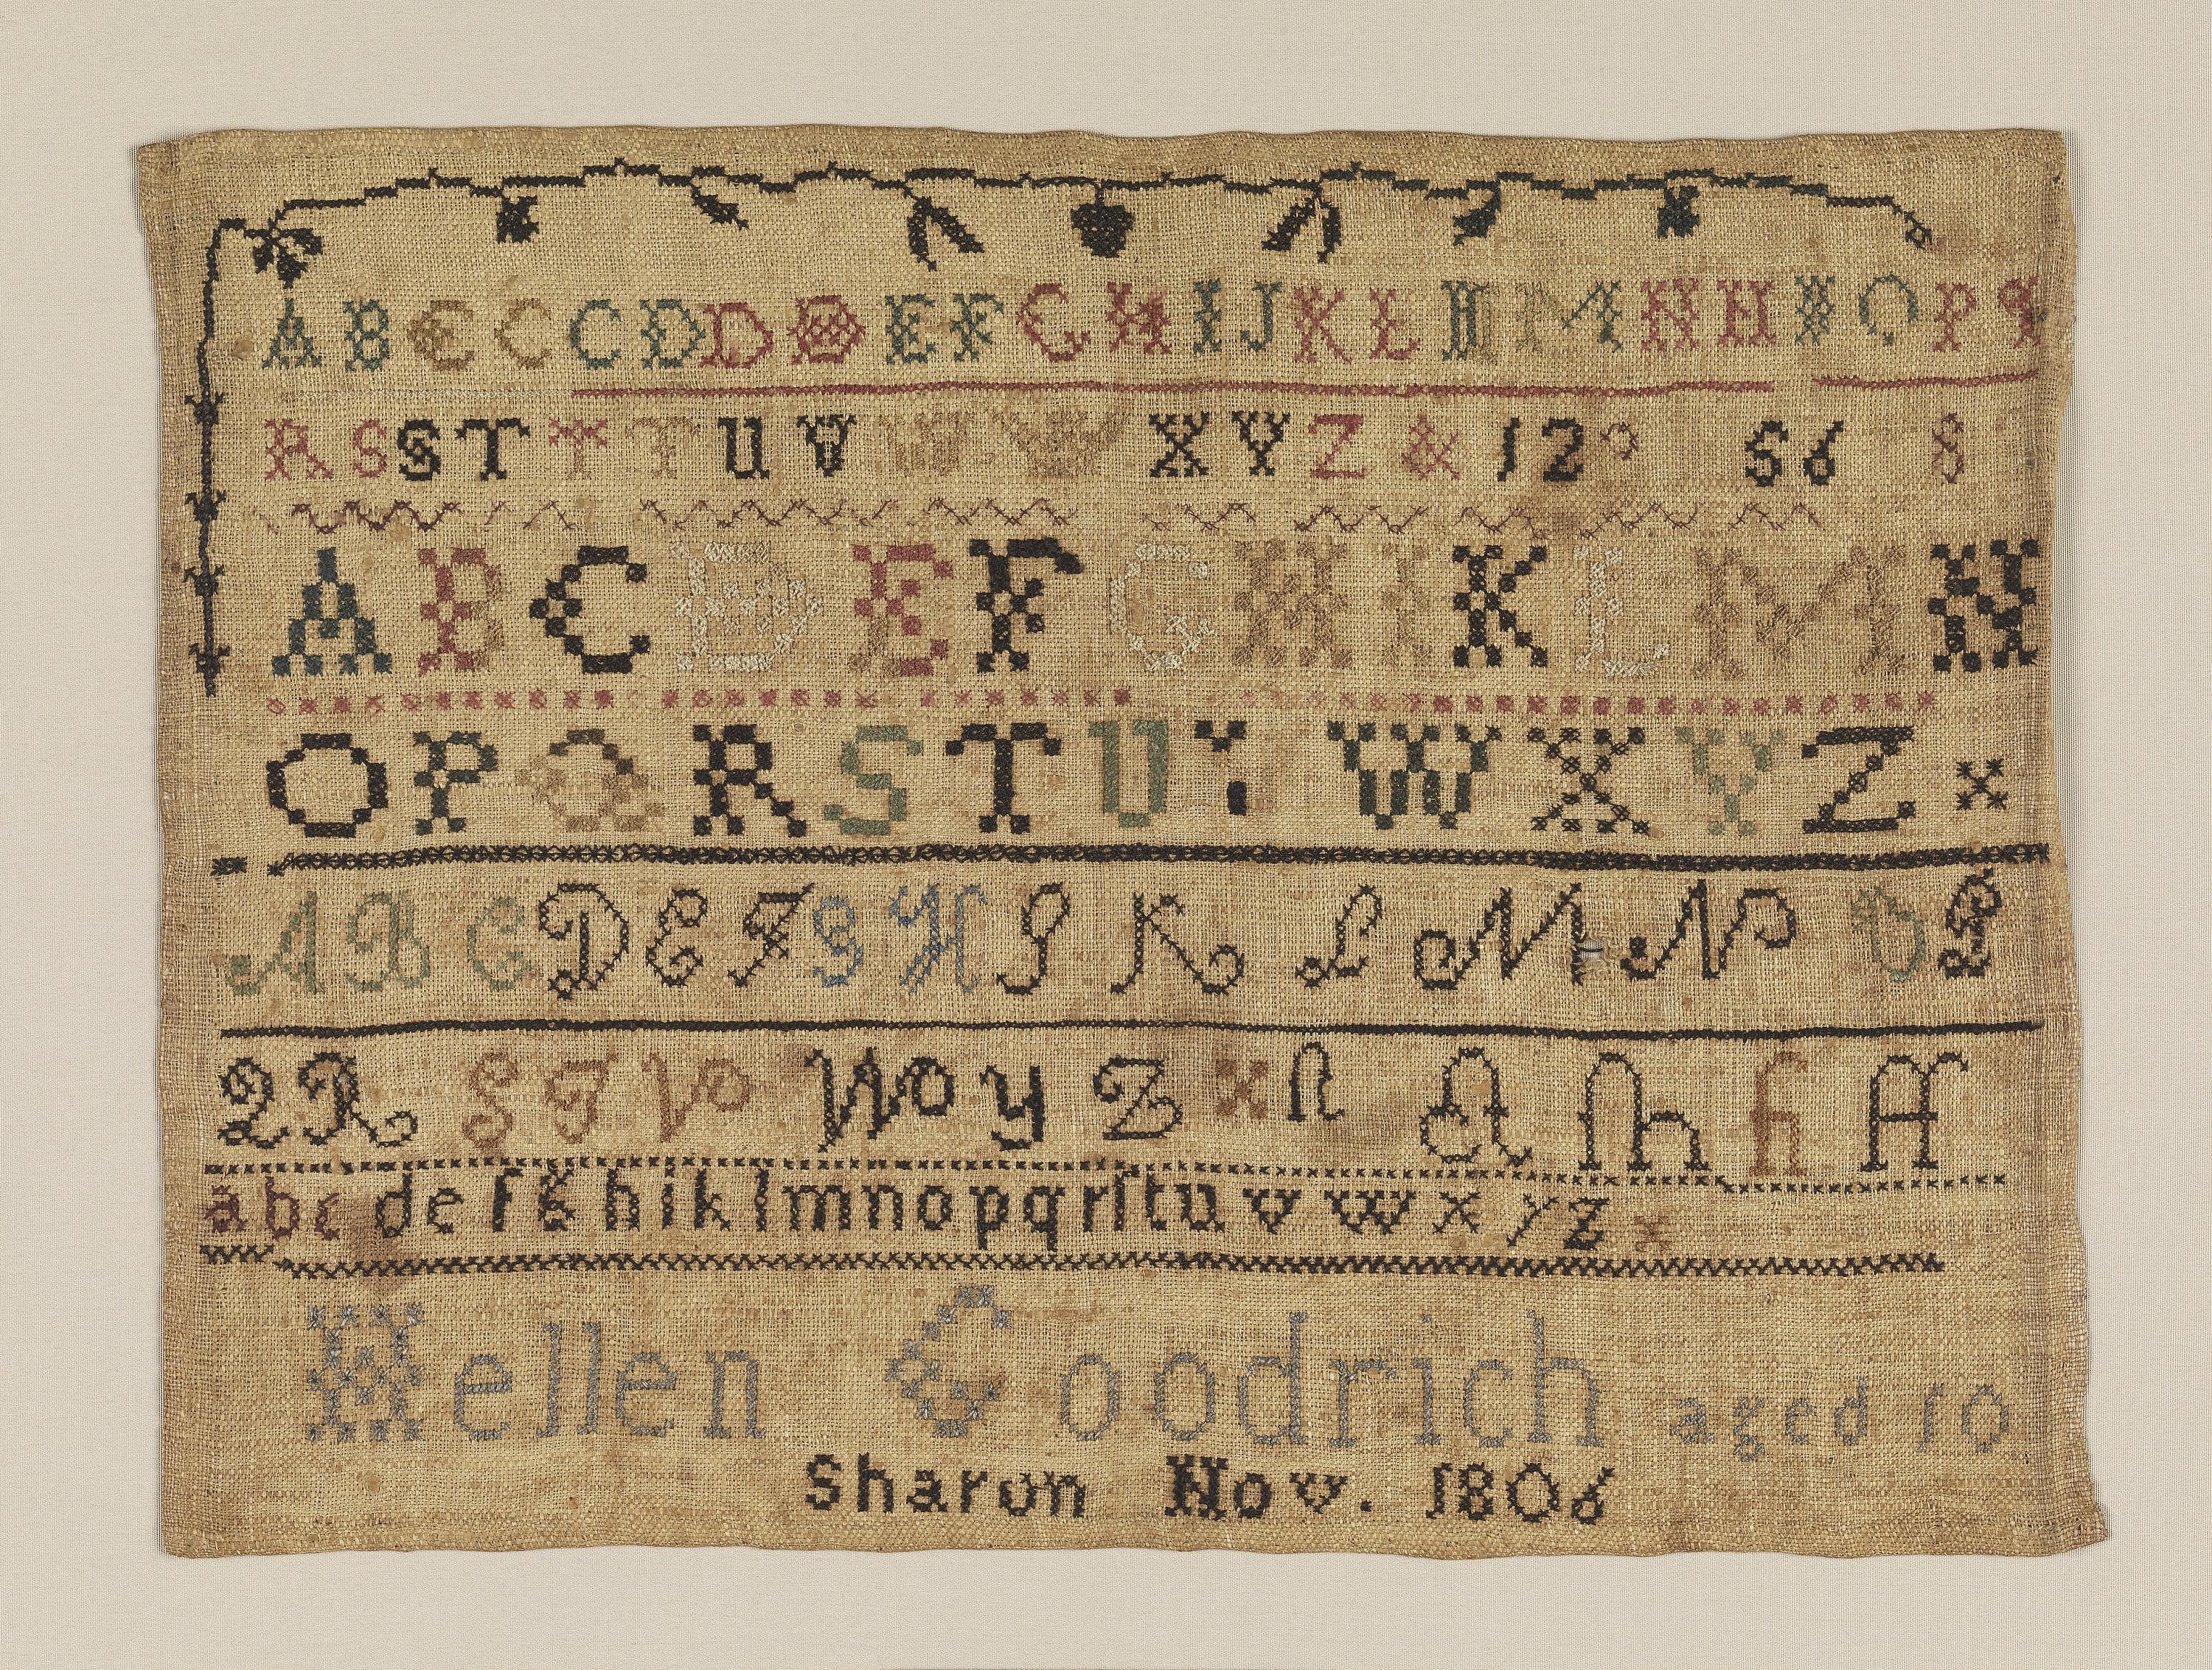 A B C C C D D D E F G H I J K L H M N H N O P q
R S S T T T U V W W X Y Z & 1 2 3 5 6 8
A B C D E F G H I K L M N
O P Q R S T U Y W X Y Z x
A B C D E F G H I K L M N O P
Q R S T V W y Z x A h h H
a b c d e f g h i k l m n o p q r ſ t u v w x y z x
Hellen Goodrich aged 10
Sharon Nov. 1806